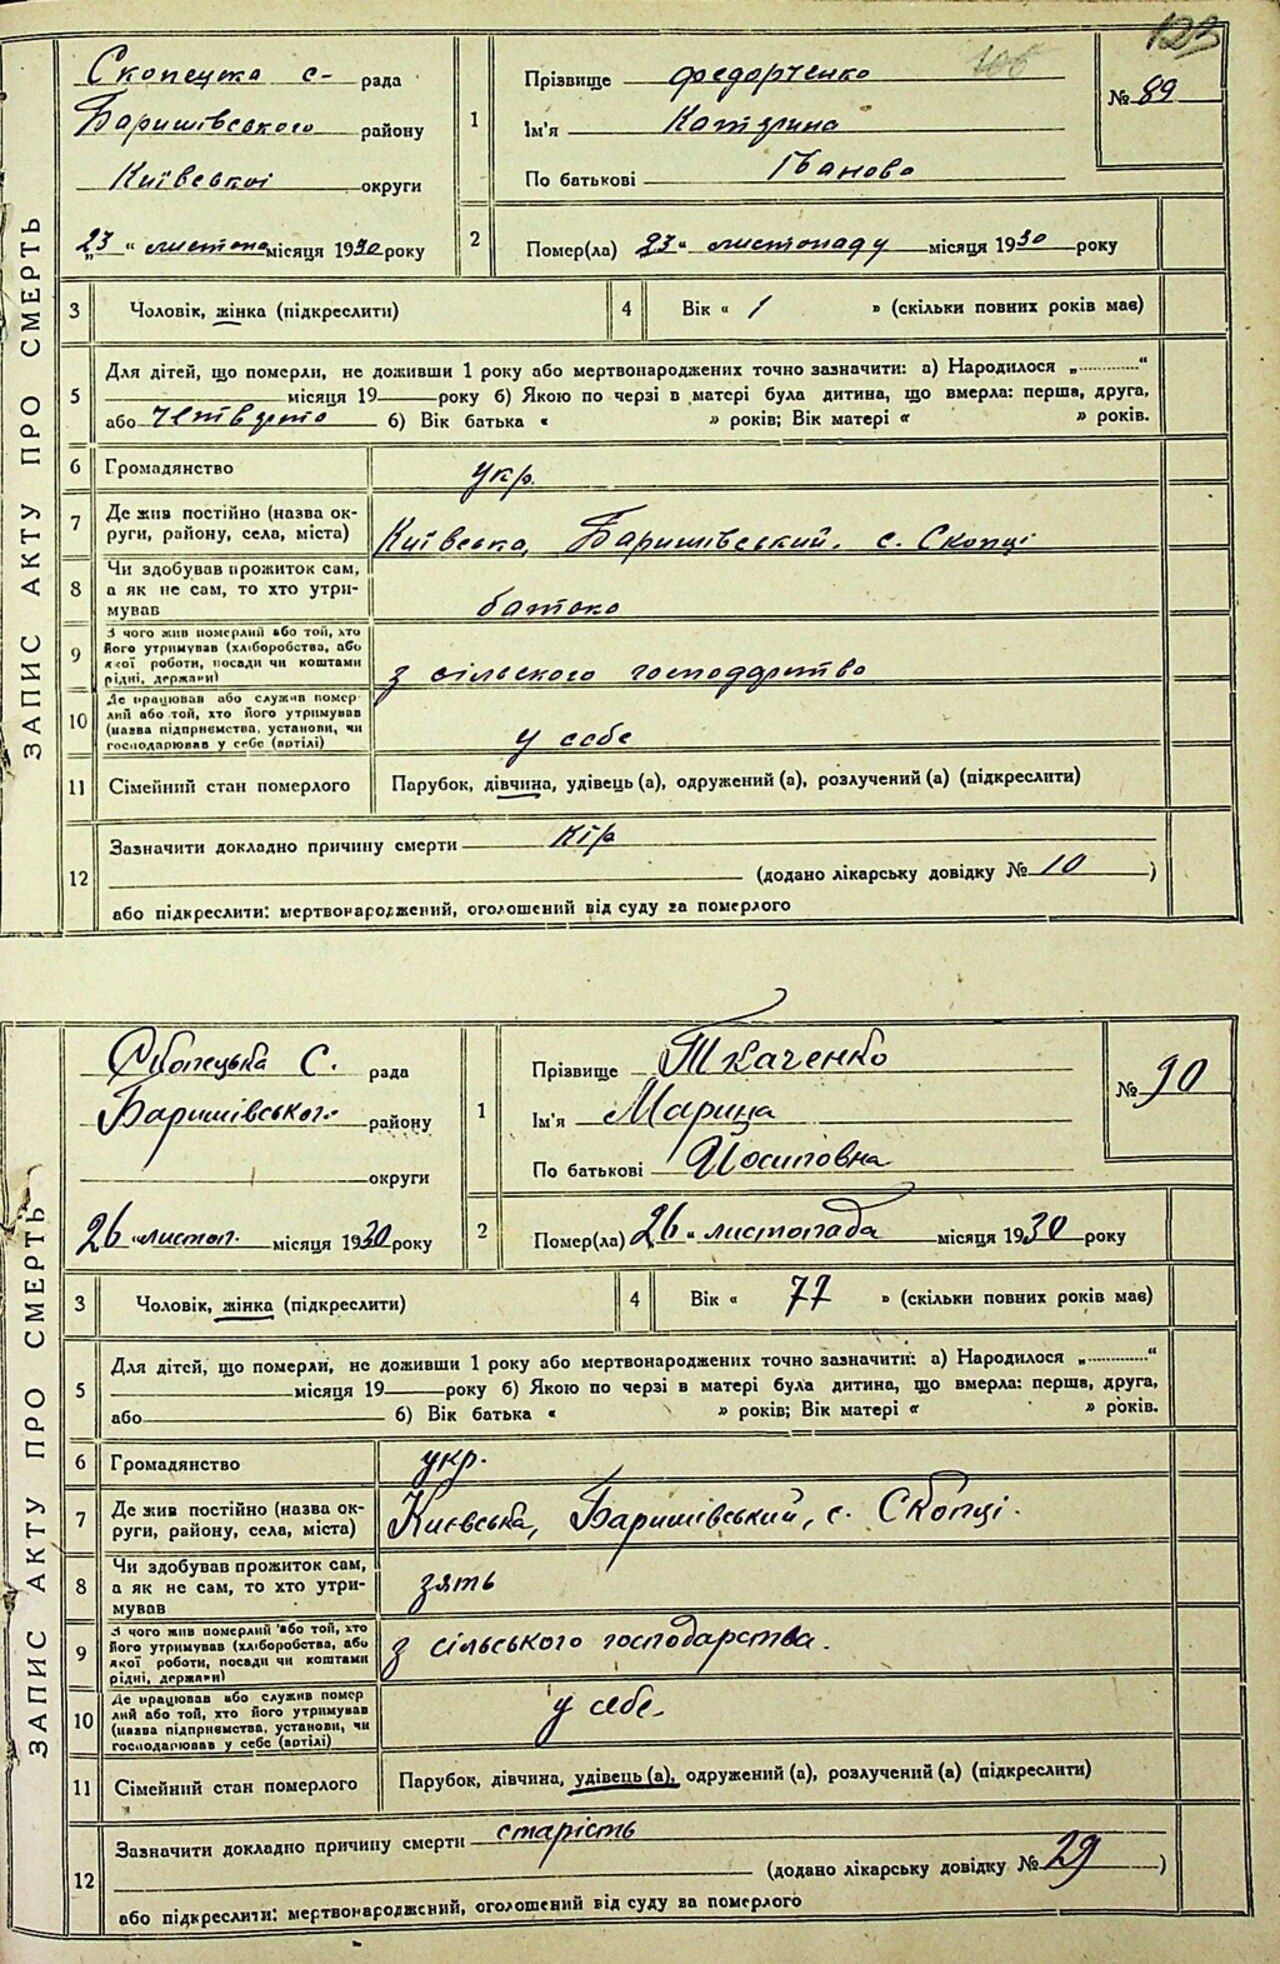 123
106
ЗАПИС АКТУ ПРО СМЕРТЬ
Скопецка с- рада
Баришівського району
Київської округи
„23 “ листопа місяця 1930 року
1
Прізвище Федорченко
Ім'я Катэрина
По батькові Іванова
№ 89
2 Помер(ла) 23 “ листопаду місяця 1930 року
3 Чоловік, жінка (підкреслити)
4 Вік « 1 » (скільки повних років має)
5 Для дітей, що померли, не доживши 1 року або мертвонароджених точно зазначити: а) Народилося „............“
місяця 19 року б) Якою по черзі в матері була дитина, що вмерла: перша, друга,
або четверто б) Вік батька « » років; Вік матері « » років.
6 Громадянство укр.
7 Де жив постійно (назва ок-
руги, району, села, міста) Київська, Баришівський, с. Скопці
8 Чи здобував прожиток сам,
а як не сам, то хто утри-
мував батько
9 З чого жив померлий або той, хто
його утримував (хліборобства, або
якої роботи, посади чи коштами
рідні, держави) з сільского господдрство
10 Де працював або служив помер
лий або той, хто його утримував
(назва підприємства, установи, чи
господарював у себе (артілі) у себе
11 Сімейний стан померлого Парубок, дівчина, удівець (а), одружений (а), розлучений (а) (підкреслити)
12 Зазначити докладно причину смерти кір
(додано лікарську довідку № 10 )
або підкреслити: мертвонароджений, оголошений від суду за померлого
ЗАПИС АКТУ ПРО СМЕРТЬ
Скопецька С. рада
Баришівського району
округи
26 “ листоп. місяця 1930 року
1
Прізвище Ткаченко
Ім'я Марина
По батькові Йосиповна
№ 90
2 Помер(ла) 26 “ листопада місяця 1930 року
3 Чоловік, жінка (підкреслити)
4 Вік « 77 » (скільки повних років має)
5 Для дітей, що померли, не доживши 1 року або мертвонароджених точно зазначити: а) Народилося „............“
місяця 19 року б) Якою по черзі в матері була дитина, що вмерла: перша, друга,
або б) Вік батька « » років; Вік матері « » років.
6 Громадянство укр.
7 Де жив постійно (назва ок-
руги, району, села, міста) Києвська, Баришівський, с. Скопці.
8 Чи здобував прожиток сам,
а як не сам, то хто утри-
мував зять
9 З чого жив померлий або той, хто
його утримував (хліборобства, або
якої роботи, посади чи коштами
рідні, держави) з сільського господарства.
10 Де працював або служив помер
лий або той, хто його утримував
(назва підприємства, установи, чи
господарював у себе (артілі) у себе.
11 Сімейний стан померлого Парубок, дівчина, удівець (а), одружений (а), розлучений (а) (підкреслити)
12 Зазначити докладно причину смерти старість
(додано лікарську довідку № 29 )
або підкреслити: мертвонароджений, оголошений від суду за померлого